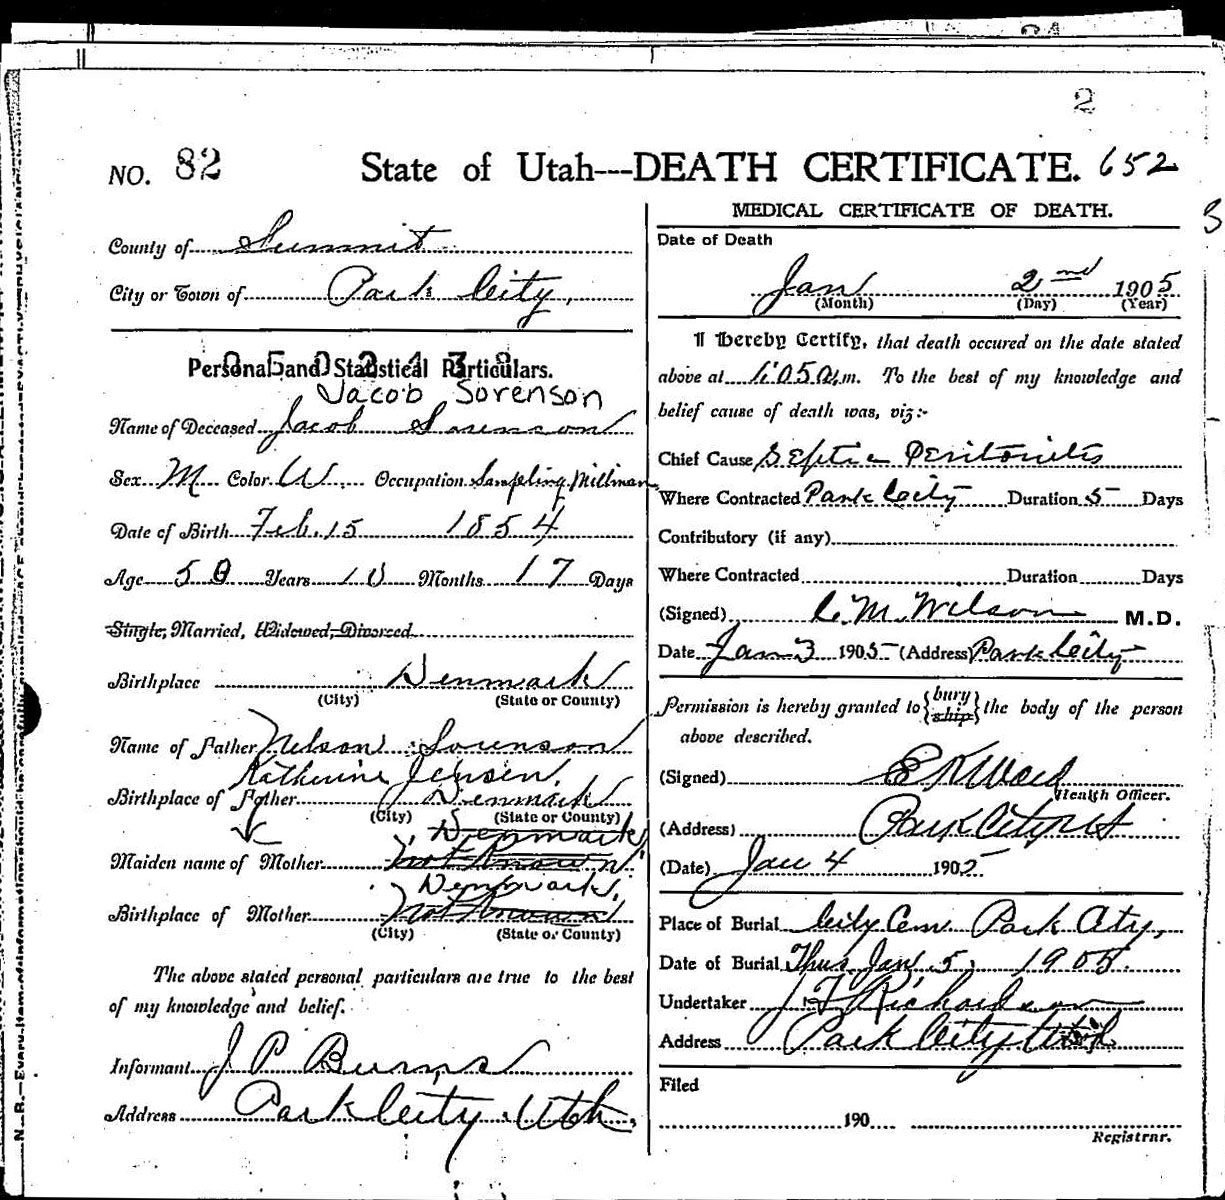 2
NO. 82 State of Utah---DEATH CERTIFICATE. 652
County of Summit
City or Town of Park City,
Personal and Statistical Particulars.
Jacob Sorenson
Name of Deceased Jacob Sorenson
Sex M Color W Occupation Sampling Millman
Date of Birth Feb. 15 1854
Age 50 Years 10 Months 17 Days
Single, Married, Widowed, Divorced
Birthplace Denmark
(City) (State or County)
Name of Father Nelson Sorenson
Katherine Jensen.
Birthplace of Father Denmark
(City) (State or County)
Denmark
Maiden name of Mother Not Known
Denmark.
Birthplace of Mother Not Known
(City) (State or County)
The above stated personal particulars are true to the best
of my knowledge and belief.
Informant J P Burns
Address Park City Utah.
MEDICAL CERTIFICATE OF DEATH.
Date of Death
Jan 2nd 1905
(Month) (Day) (Year)
I Hereby Certify, that death occured on the date stated
above at 1:05 a.m. To the best of my knowledge and
belief cause of death was, viz:-
Chief Cause Septic Peritonitis
Where Contracted Park City Duration 5 Days
Contributory (if any)
Where Contracted Duration Days
(Signed) C. M. Wilson M.D.
Date Jan 3 1905 (Address) Park City
Permission is hereby granted to {bury ship} the body of the person
above described.
(Signed)
Health Officer.
(Address) Park City Ut
(Date) Jan 4 1905
Place of Burial City Cem Park City,
Date of Burial Thus Jan 5. 1905.
Undertaker Richardson
Address Park City Utah
Filed
190
Registrar.